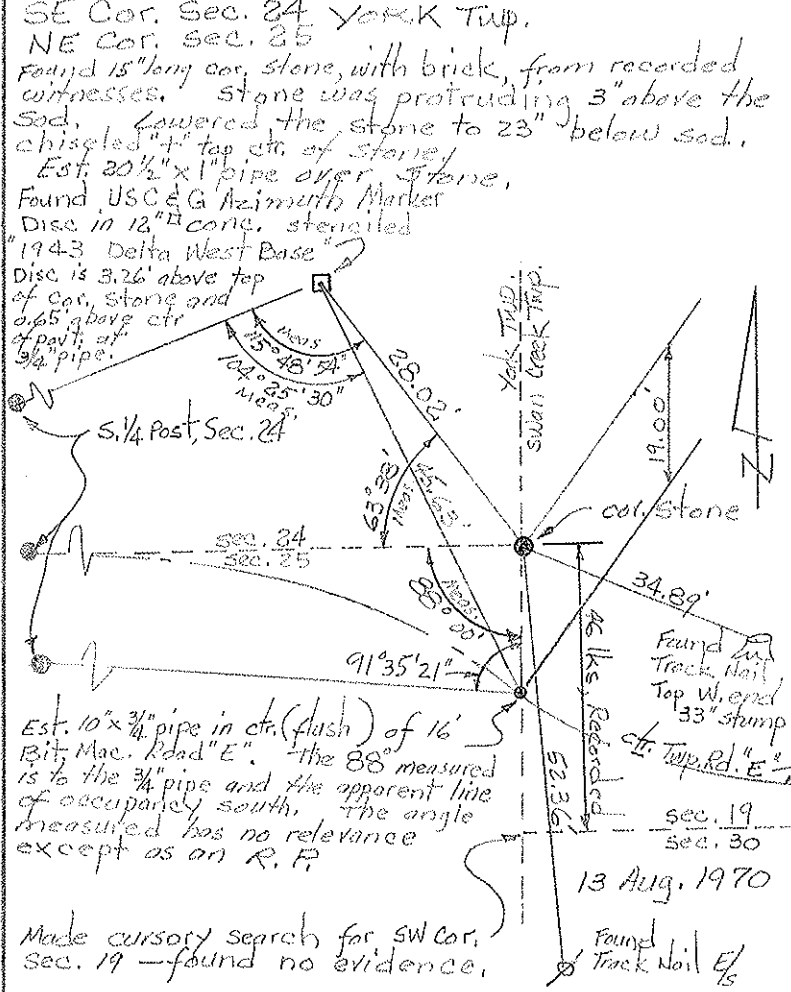 SE Cor. Sec. 24 York Twp.
NE Cor. Sec. 25
Found 15" long cor. stone, with brick, from recorded
witnesses. Stone was protruding 3" above the
sod. Lowered the stone to 23" below sod.
chiseled "+" top ctr. of stone,
Est. 20½" x 1" pipe over stone.
Found USC & G Azimuth Marker
Disc in 12"□ conc. stenciled
"1943 Delta West Base"
Disc is 3.26' above top
of cor. stone and
0.65' above ctr
of pavt. at
3/4" pipe.
Meas
115° 48' 54"
104° 25' 30"
Meas.
28.02'
York Twp.
Swan Creek Twp.
19.00'
N
S. 1/4 Post, Sec. 24
63° 38'
Meas.
45.63'
cor. stone
sec. 24
sec. 25
Meas.
88° 00'
34.89'
46 lks. Recorded
Found
Track Nail
Top W. end
33" stump
91° 35' 21"
ctr. Twp. Rd. "E"
Est. 10" x 3/4" pipe in ctr. (flush) of 16'
Bit. Mac. Road "E". The 88° measured
is to the 3/4" pipe and the apparent line
of occupancy south. The angle
measured has no relevance
except as an R. P.
52.36'
sec. 19
sec. 30
13 Aug. 1970
Made cursory search for SW Cor.
Sec. 19 — found no evidence.
Found
Track Nail E/s